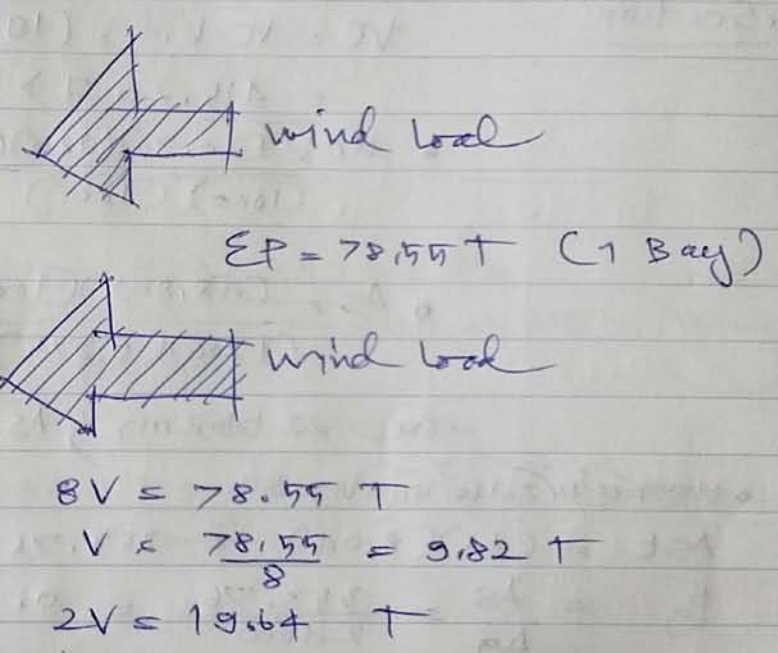 wind load
ΣP = 78,55 T (1 Bay)
wind load
8V = 78.55 T
V = 78,55 / 8 = 9.82 T
2V = 19.64 T